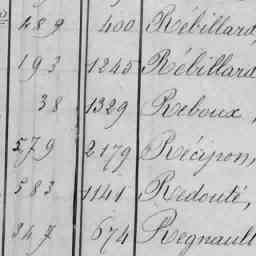 489 400 Rébillard,
193 1245 Rébillard
38 1329 Reboux,
579 2179 Récipon,
583 1141 Redouté,
347 674 Regnault